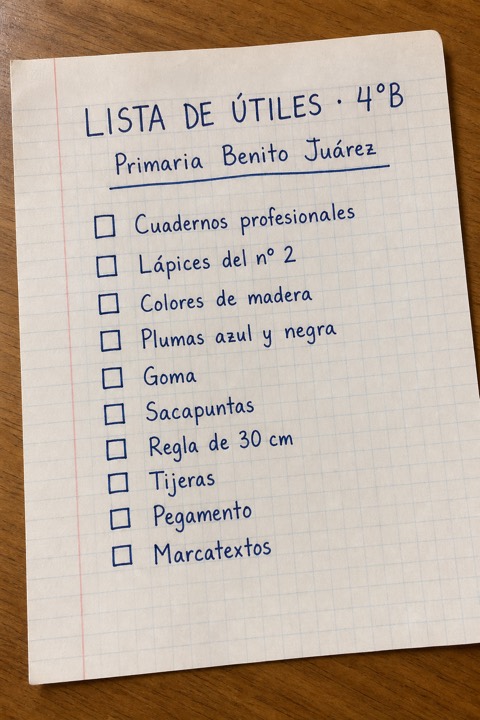 LISTA DE ÚTILES · 4°B
Primaria Benito Juárez
Cuadernos profesionales
Lápices del nº 2
Colores de madera
Plumas azul y negra
Goma
Sacapuntas
Regla de 30 cm
Tijeras
Pegamento
Marcatextos